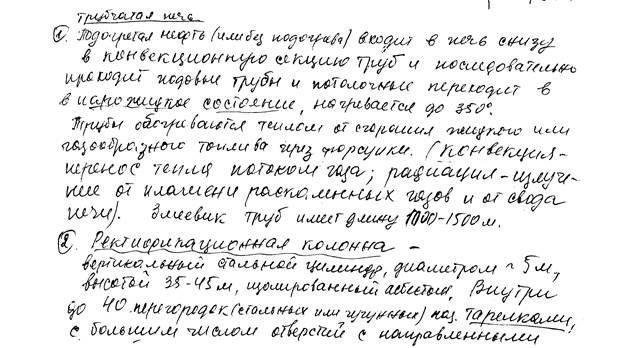 трубчатая печь
①. Подогретая нефть (или без подогрева) входит в печь снизу
в конвекционную секцию труб и последовательно
проходит подовые трубы и потолочные переходит в
в парожидкое состояние, нагревается до 350°.
Трубы обогреваются теплом от сгорания жидкого или
газообразного топлива через форсунки. (конвекция-
перенос тепла потоком газа; радиация-излуче-
ние от пламени раскаленных газов и от свода
печи). Змеевик труб имеет длину 1000-1500м.
②. Ректификационная колонна –
вертикальный стальной цилиндр, диаметром ~ 5м,
высотой 35-45м, изолированный асбестом, Внутри
до 40 перегородок (стальных или чугунных) наз. Тарелками,
с большим числом отверстий с направленными